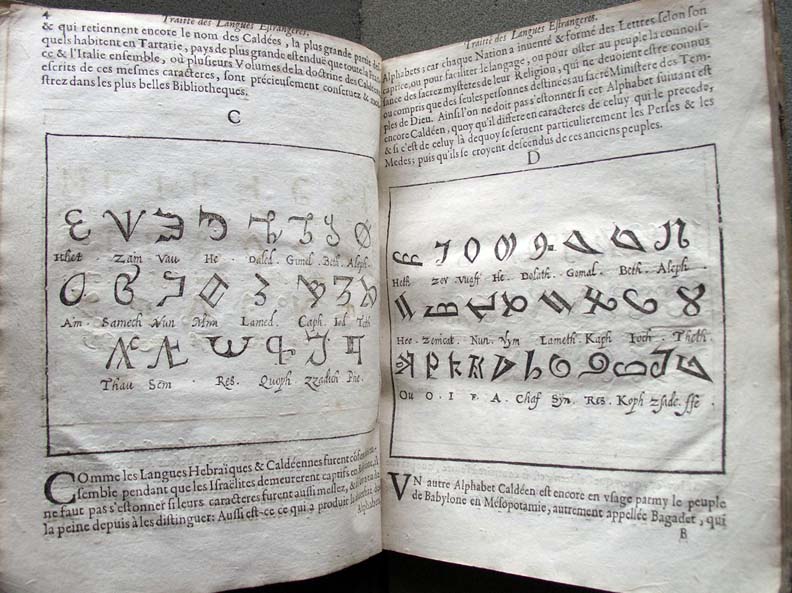 4
Traitté des Langues Estrangeres.
& qui retiennent encore le nom des Caldées, la plus grande partie des-
quels habitent en Tartarie, pays de plus grande estenduë que toute la
ce & l'Italie ensemble, où plusieurs Volumes de la doctrine des Caldées
escrits de ces mesmes caracteres, sont précieusement conseruez & mon-
strez dans les plus belles Bibliotheques.
C
Hhet. Zam Vau. He. Daled. Gimel. Beth. Aleph.
Am. Samech Nun Mim Lamed. Caph. Iod Teth
Thau Sem. Res. Quoph Zzadich Phe.
COmme les Langues Hebraïques & Caldéennes furent
semble pendant que les Israëlites demeurerent captifs en
ne faut pas s'estonner si leurs caracteres furent aussi meslez, &
la peine depuis à les distinguer: Aussi est-ce ce qui a produit
Alphabets
Traitté des Langues Estrangeres.
Alphabets; car chaque Nation a inuenté & formé des Lettres selon son
caprice, ou pour faciliter le langage, ou pour oster au peuple la connois-
sance des sacrez mysteres de leur Religion, qui ne deuoient estre connus
ou compris que des seules personnes destinées au sacré Ministere des Tem-
ples de Dieu. Ainsi l'on ne doit pas s'estonner si cet Alphabet suiuant est
encore Caldéen, quoy qu'il differe en caracteres de celuy qui le precede,
& si c'est de celuy là dequoy se seruent particulierement les Perses & les
Medes; puis qu'ils se croyent descendus de ces anciens peuples.
D
Heth Zer Vugff He. Dolath. Gomal. Beth. Aleph.
Hee. Zemcat. Nun. Mym Lameth. Kaph Ioch. Theth.
Ou O. I E A. Chaf Syn. Res. Koph Zsade. ffe.
VN autre Alphabet Caldéen est encore en vsage parmy le peuple
de Babylone en Mésopotamie, autrement appellée Bagadet, qui
B